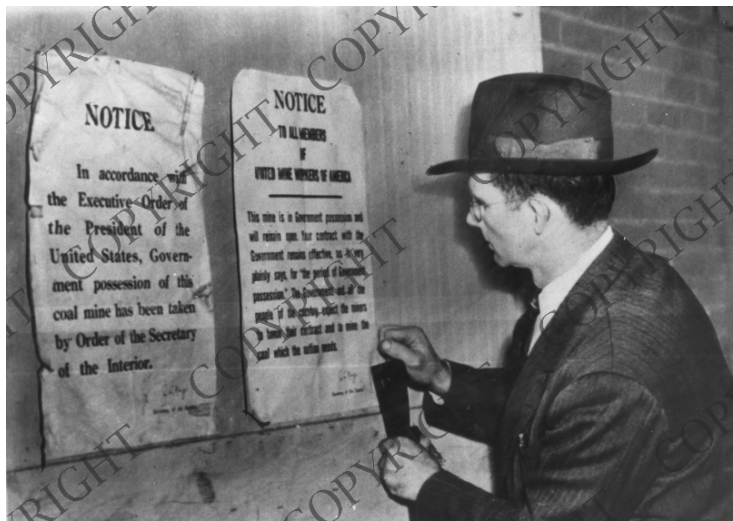 NOTICE
In accordance with
the Executive Order of
the President of the
United States, Govern-
ment possession of this
coal mine has been taken
by Order of the Secretary
of the Interior.
Secretary of the
NOTICE
TO ALL MEMBERS
OF
UNITED MINE WORKERS OF AMERICA
This mine is in Government possession and
will remain open. Your contract with the
Government remains effective, as it very
plainly says, for "the period of Government
possession." The Government and all the
people of the country, expect the miners
to honor their contract and to mine the
coal which the nation needs.
Secretary of the
COPYRIGHT
COPYRIGHT
COPYRIGHT
COPYRIGHT
COPYRIGHT
COPYRIGHT
COPYRIGHT
COPYRIGHT
COPYRIGHT